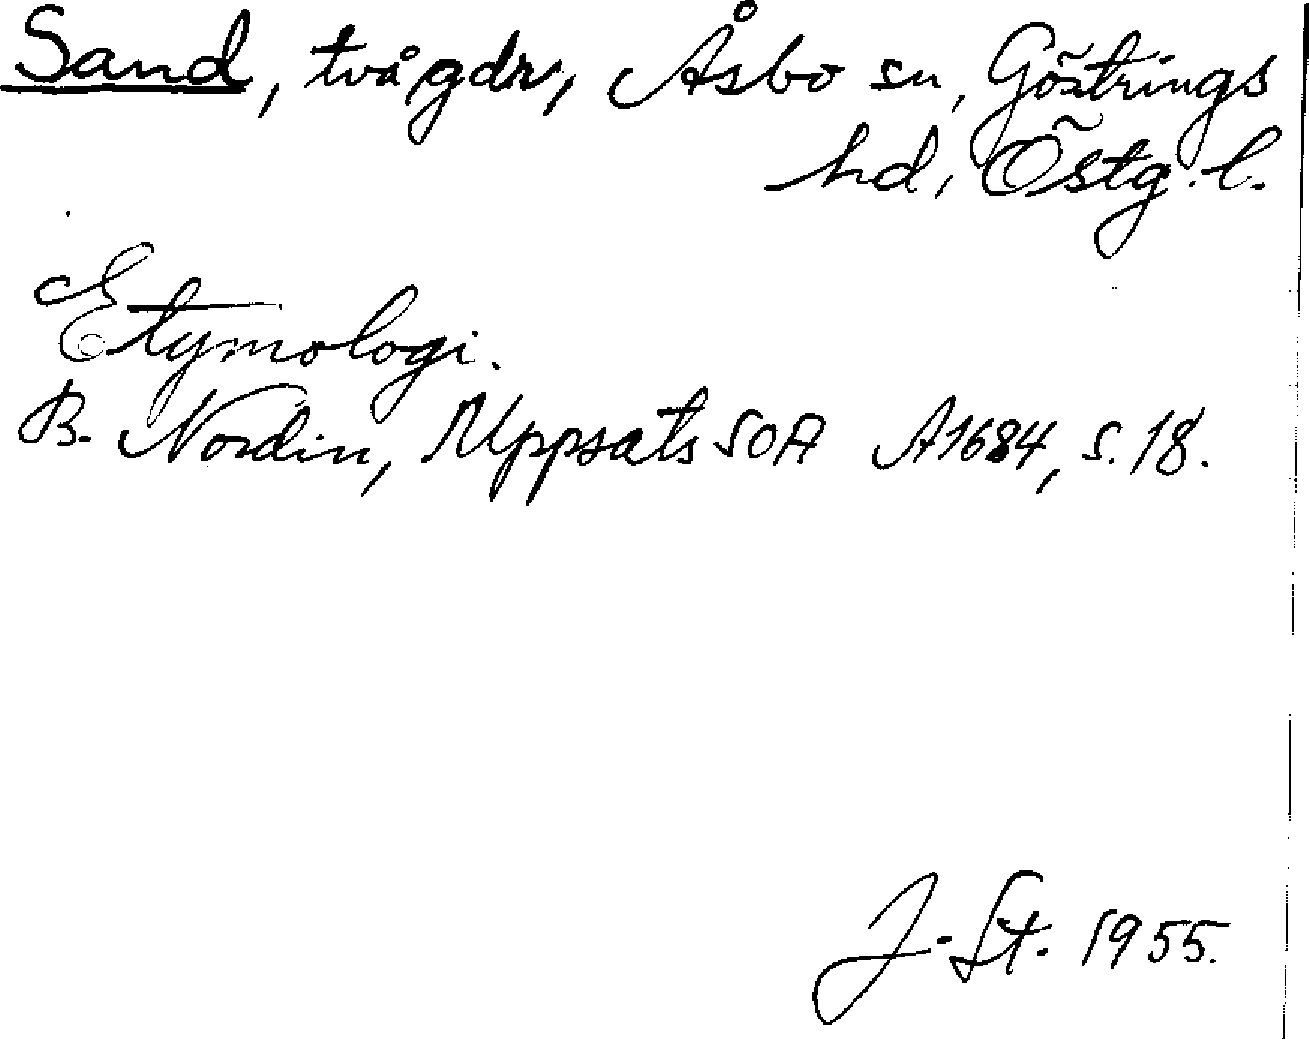 Sand, två gdr, Åsbo sn, Göstrings
hd, Östg. l.
Etymologi.
B. Nordin, Uppsats SOA A1684, s. 18.
J. St. 1955.